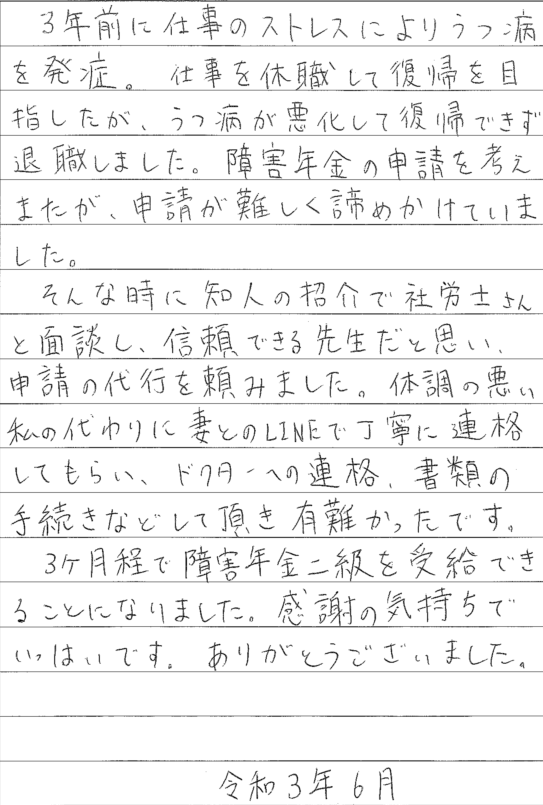 3年前に仕事のストレスによりうつ病
を発症。仕事を休職して復帰を目
指したが、うつ病が悪化して復帰できず
退職しました。障害年金の申請を考え
またが、申請が難しく諦めかけていま
した。
そんな時に知人の招介で社労士さん
と面談し、信頼できる先生だと思い、
申請の代行を頼みました。体調の悪い
私の代わりに妻とのLINEで丁寧に連格
してもらい、ドクターへの連格、書類の
手続きなどして頂き有難かったです。
3ケ月程で障害年金二級を受給でき
ることになりました。感謝の気持ちで
いっぱいです。ありがとうございました。
令和3年6月